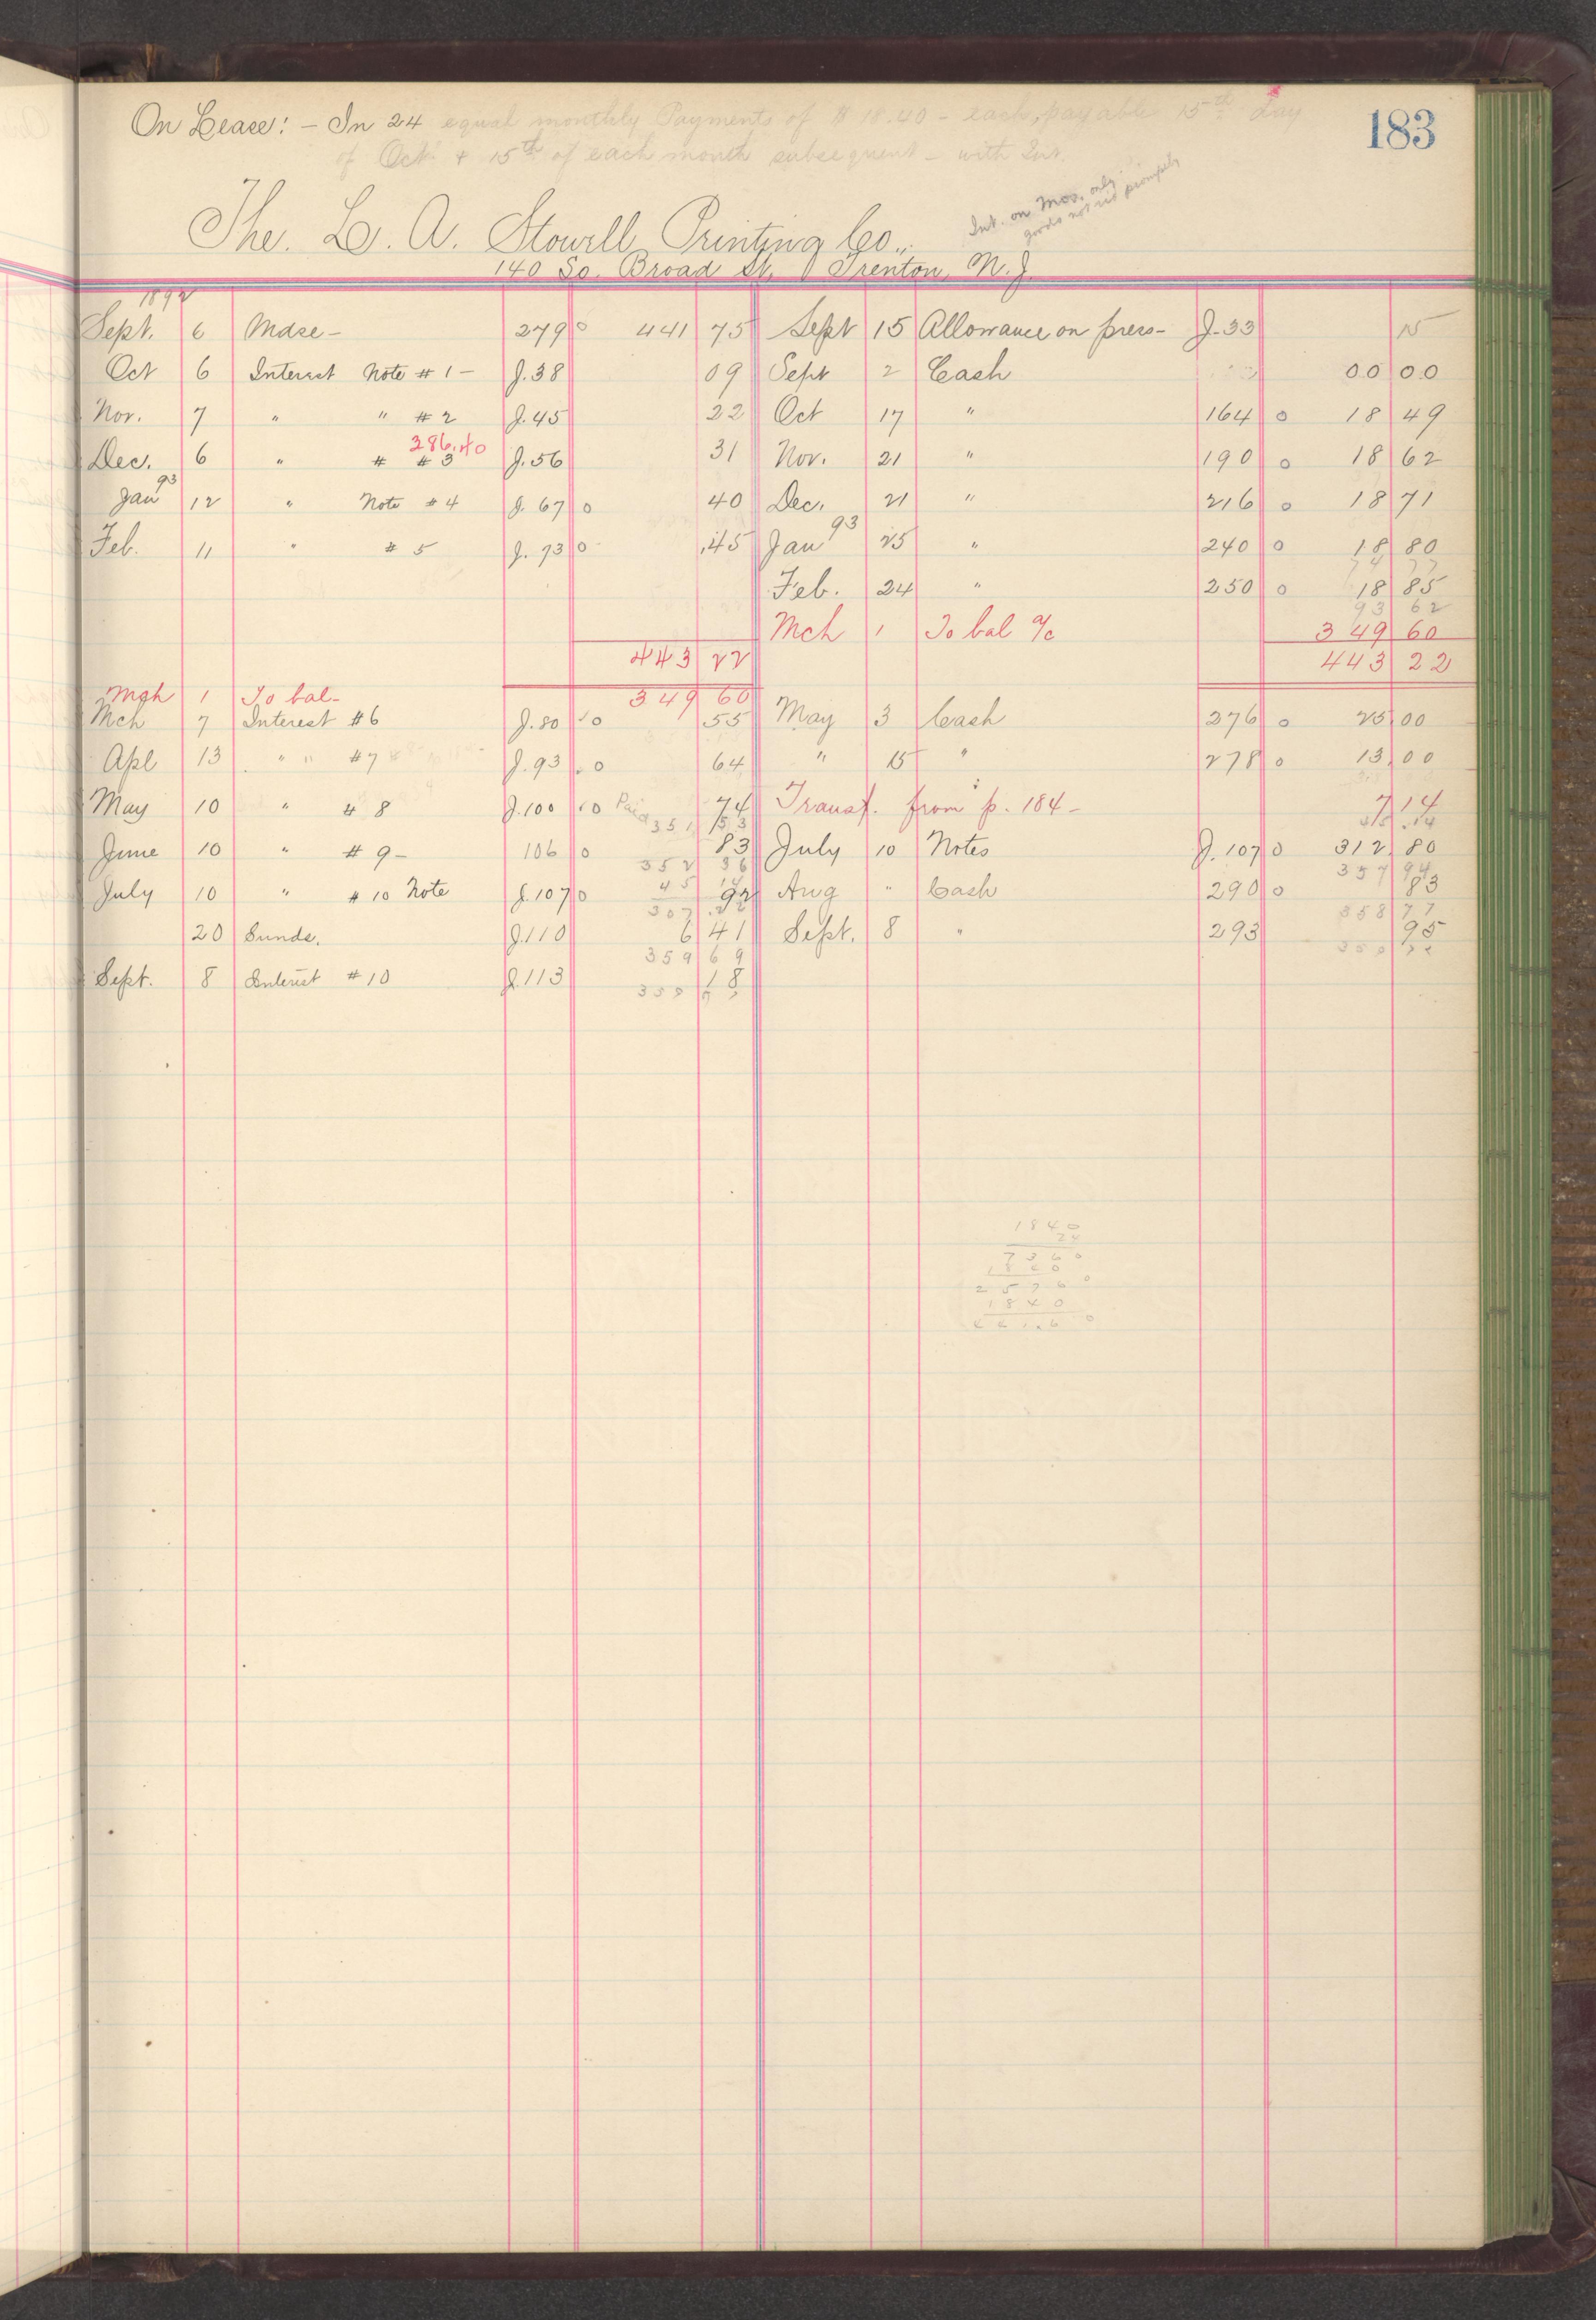 183
On Lease: - In 24 equal monthly Payments of $18.40 - each, payable 15th day
of Oct. & 15th of each month subsequent - with Int.
Int. on Mos. only
The L. A. Stowell Printing Co.,
140 So. Broad St, Trenton, N. J.
1892
Sept. 6 Mdse - 279 0 441 75 Sept 15 Allowance on press - J.33 15
Oct 6 Interest Note #1 - J.38 09 Sept 2 Cash 00 00
Nov. 7 " " #2 J.45 22 Oct 17 " 164 0 18 49
386.40
Dec. 6 " " #3 J.56 31 Nov. 21 " 190 0 18 62
Jan 93 12 " Note #4 J.67 0 40 Dec. 21 " 216 0 18 71
Feb. 11 " #5 J.73 0 .45 Jan 93 25 " 240 0 18 80
74 77
Feb. 24 " 250 0 18 85
93 62
Mch 1 To bal a/c 349 60
443 22 443 22
Mch 1 To bal- 349 60
Mch 7 Interest #6 J.80 0 55 May 3 Cash 276 0 25 00
Apl 13 " " #7 J.93 0 64 " 15 " 278 0 13 00
May 10 " #8 J.100 0 Paid 74 Transf. from p. 184 - 7 14
351 53 45 14
June 10 " #9 - 106 0 83 July 10 Notes J.107 0 312 80
352 36 357 94
July 10 " #10 Note J.107 0 92 Aug " Cash 290 0 83
45 14
307 22 358 77
20 Sunds. J.110 6 41 Sept. 8 " 293 95
359 69
Sept. 8 Interest #10 J.113 18
1840
24
7360
1840
25760
1840
441.60